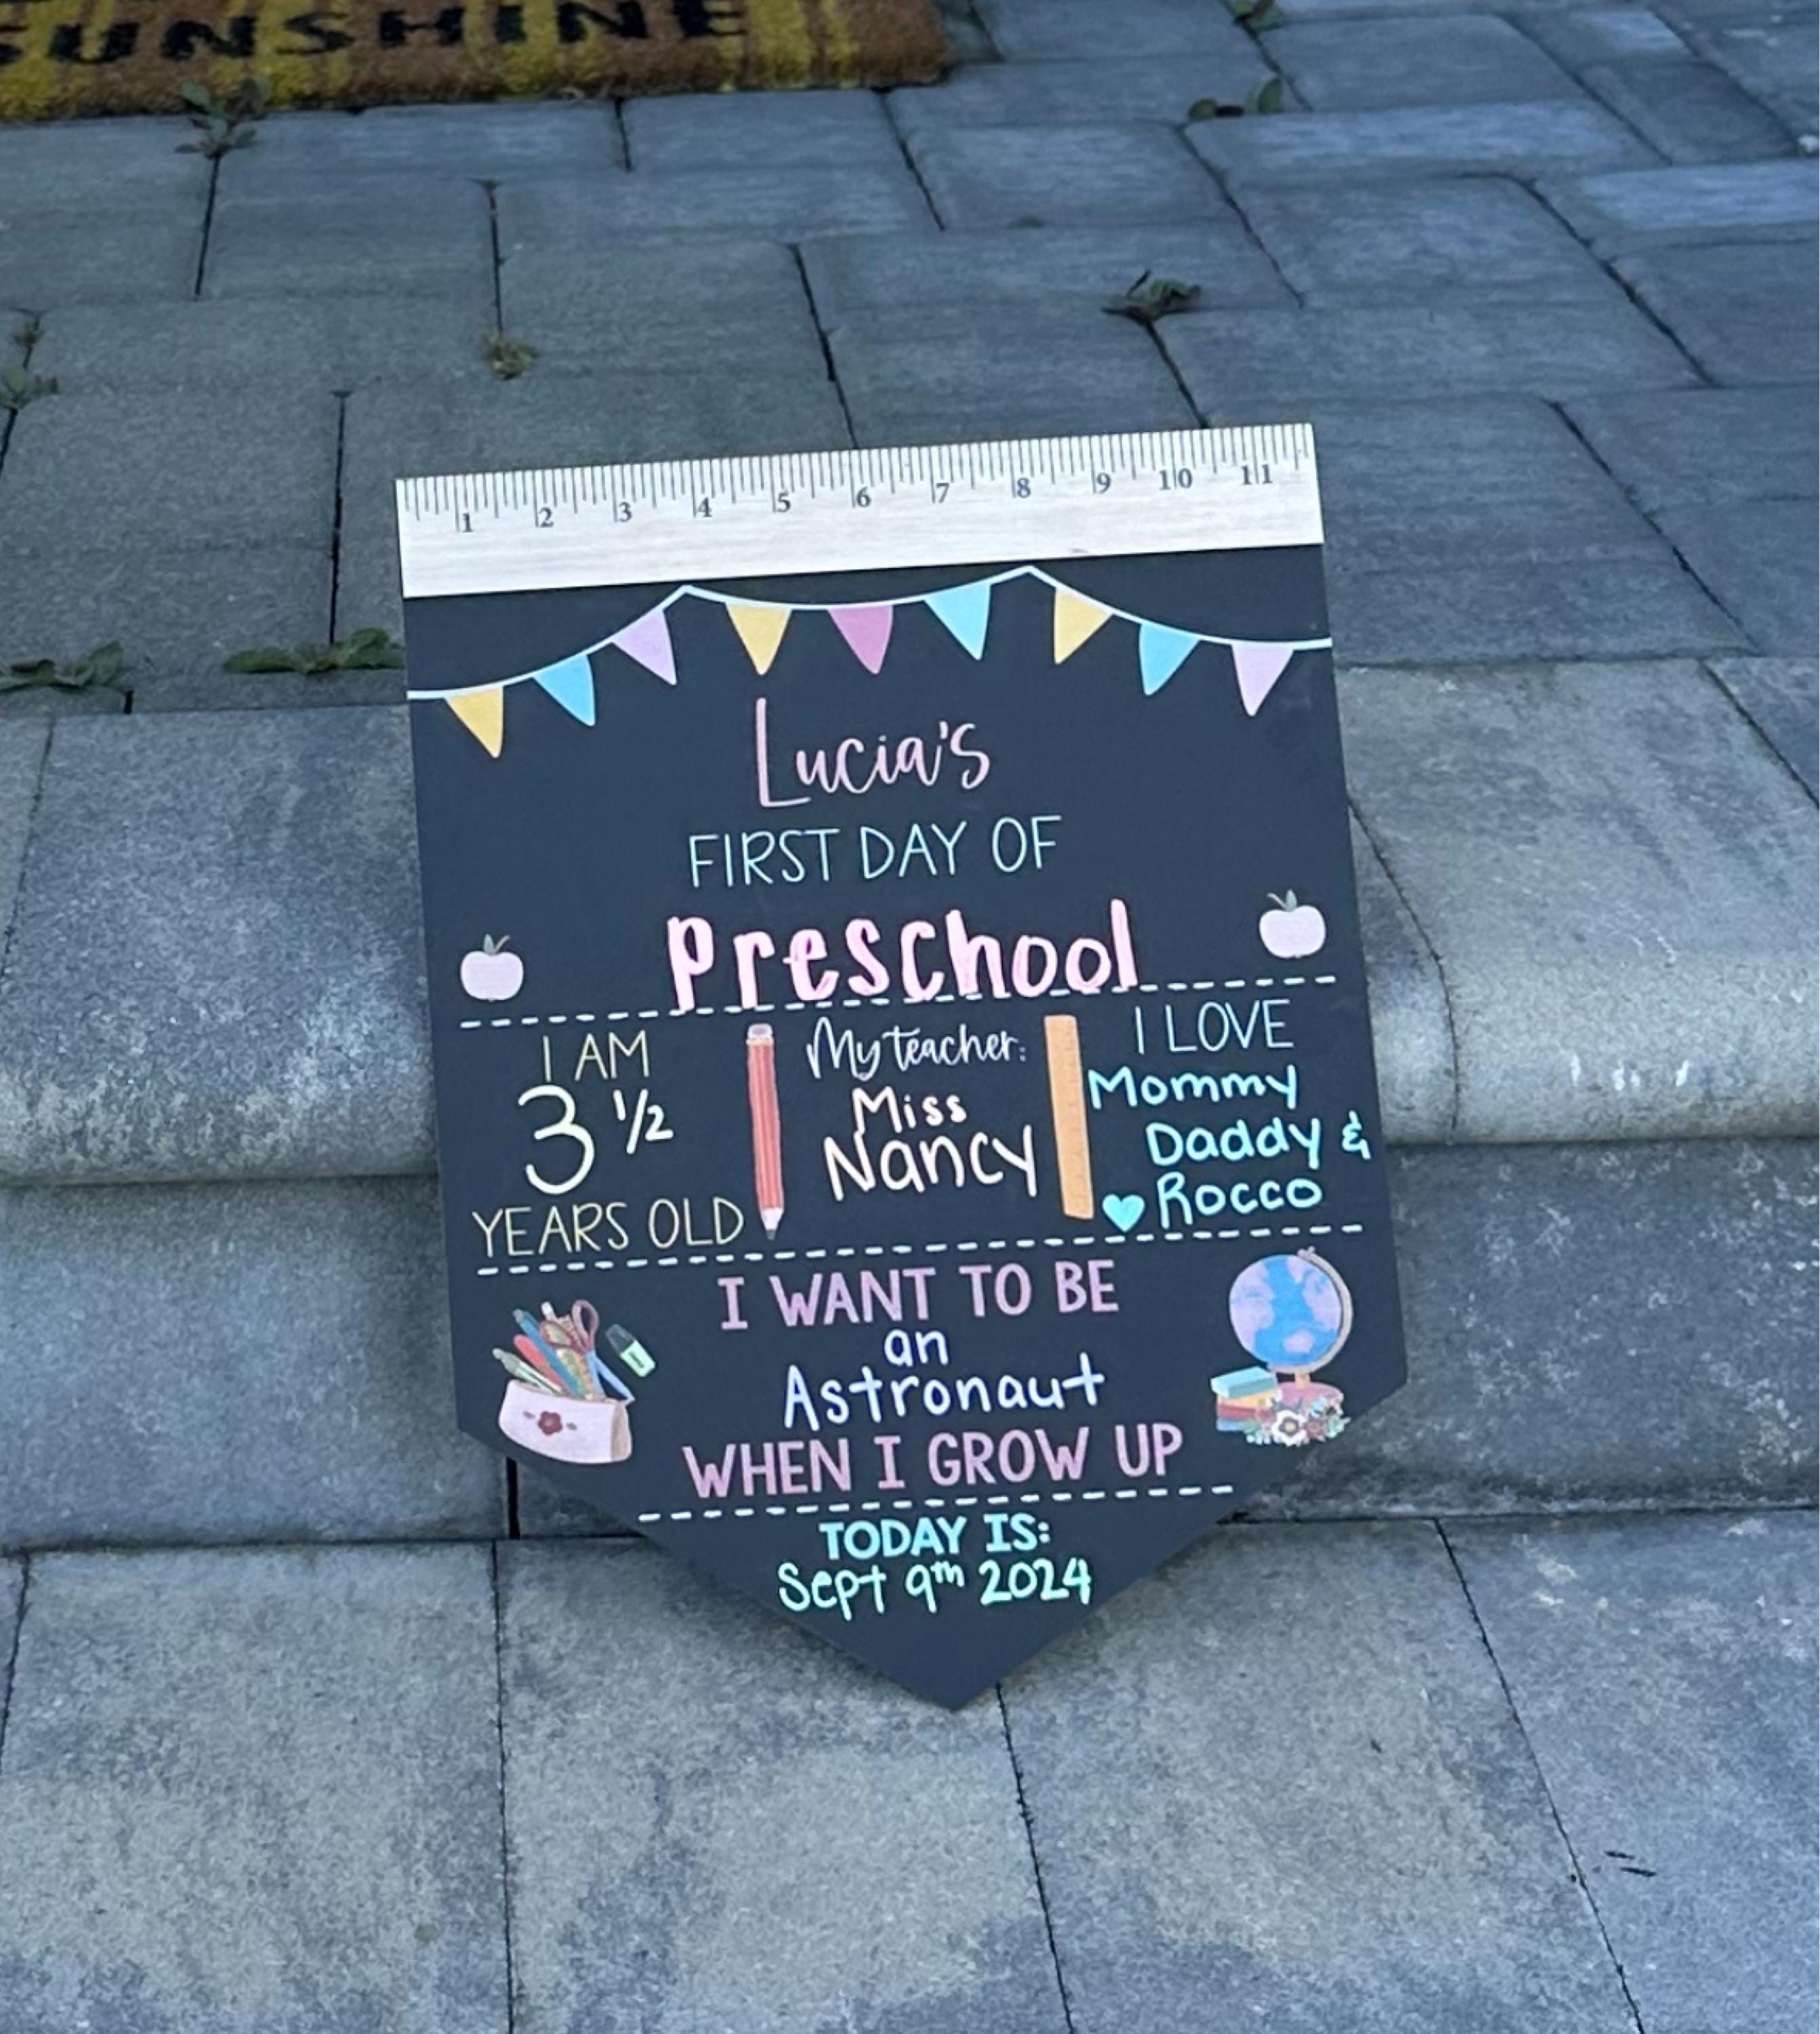 SUNSHINE
1 2 3 4 5 6 7 8 9 10 11
Lucia's
FIRST DAY OF
Preschool
I AM
3 1/2
YEARS OLD
My teacher:
Miss
Nancy
I LOVE
Mommy
Daddy &
Rocco
I WANT TO BE
an
Astronaut
WHEN I GROW UP
TODAY IS:
Sept 9th 2024